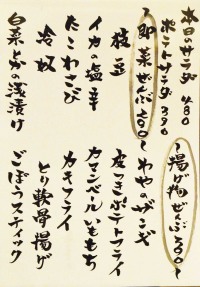 本日のサラダ 480
ポテトサラダ 390
〜即菜ぜんぶ290〜
枝豆
イカの塩辛
たこわさび
冷奴
白菜とかの浅漬け
〜揚げ物ぜんぶ390〜
わやのザンギ
皮つきポテトフライ
カマンベールいももち
カキフライ
とり軟骨揚げ
ごぼうスティック